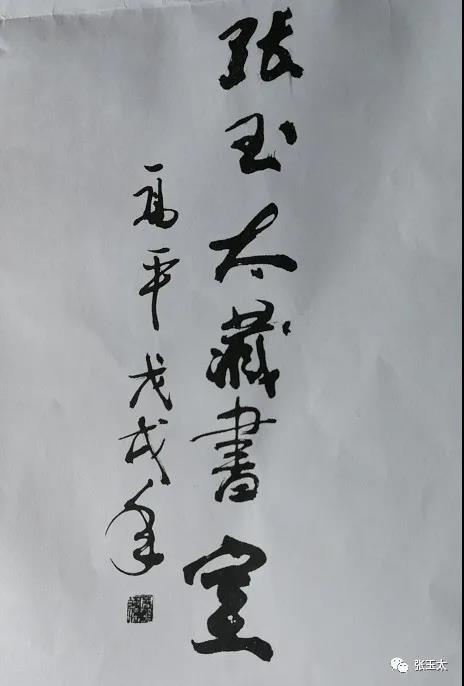 张玉太藏書室
高平戊戌年
张玉太